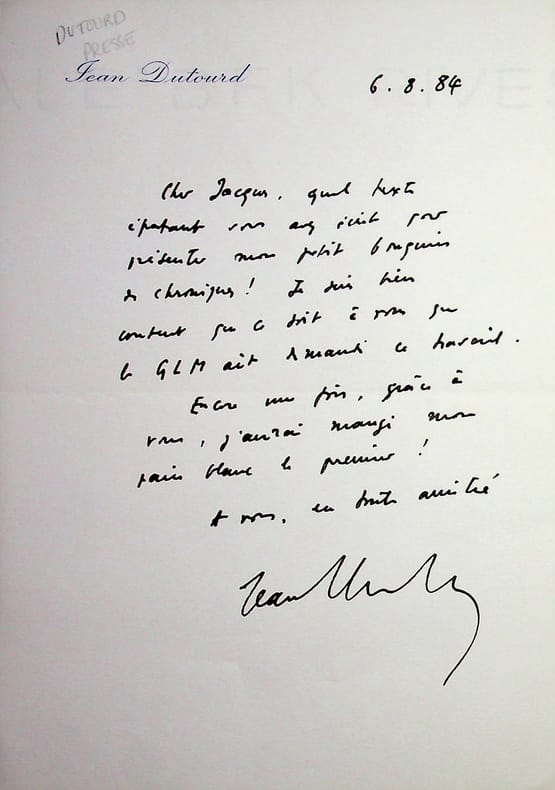 DUTOURD
PRESSE
Jean Dutourd
6.8.84
Cher Jacques, quel texte
épatant vous avez écrit pour
présenter mon petit bouquin
de chroniques ! Je suis bien
content que ce soit à vous que
le GLM ait demandé ce travail.
Encore une fois, grâce à
vous, j'aurai mangé mon
pain blanc le premier !
A vous, en toute amitié
Jean Dutourd